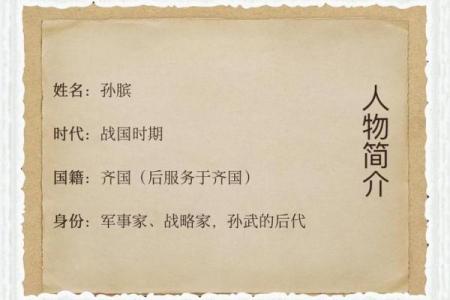 人物简介
姓名：孙膑
时代：战国时期
国籍：齐国（后服务于齐国）
身份：军事家、战略家，孙武的后代